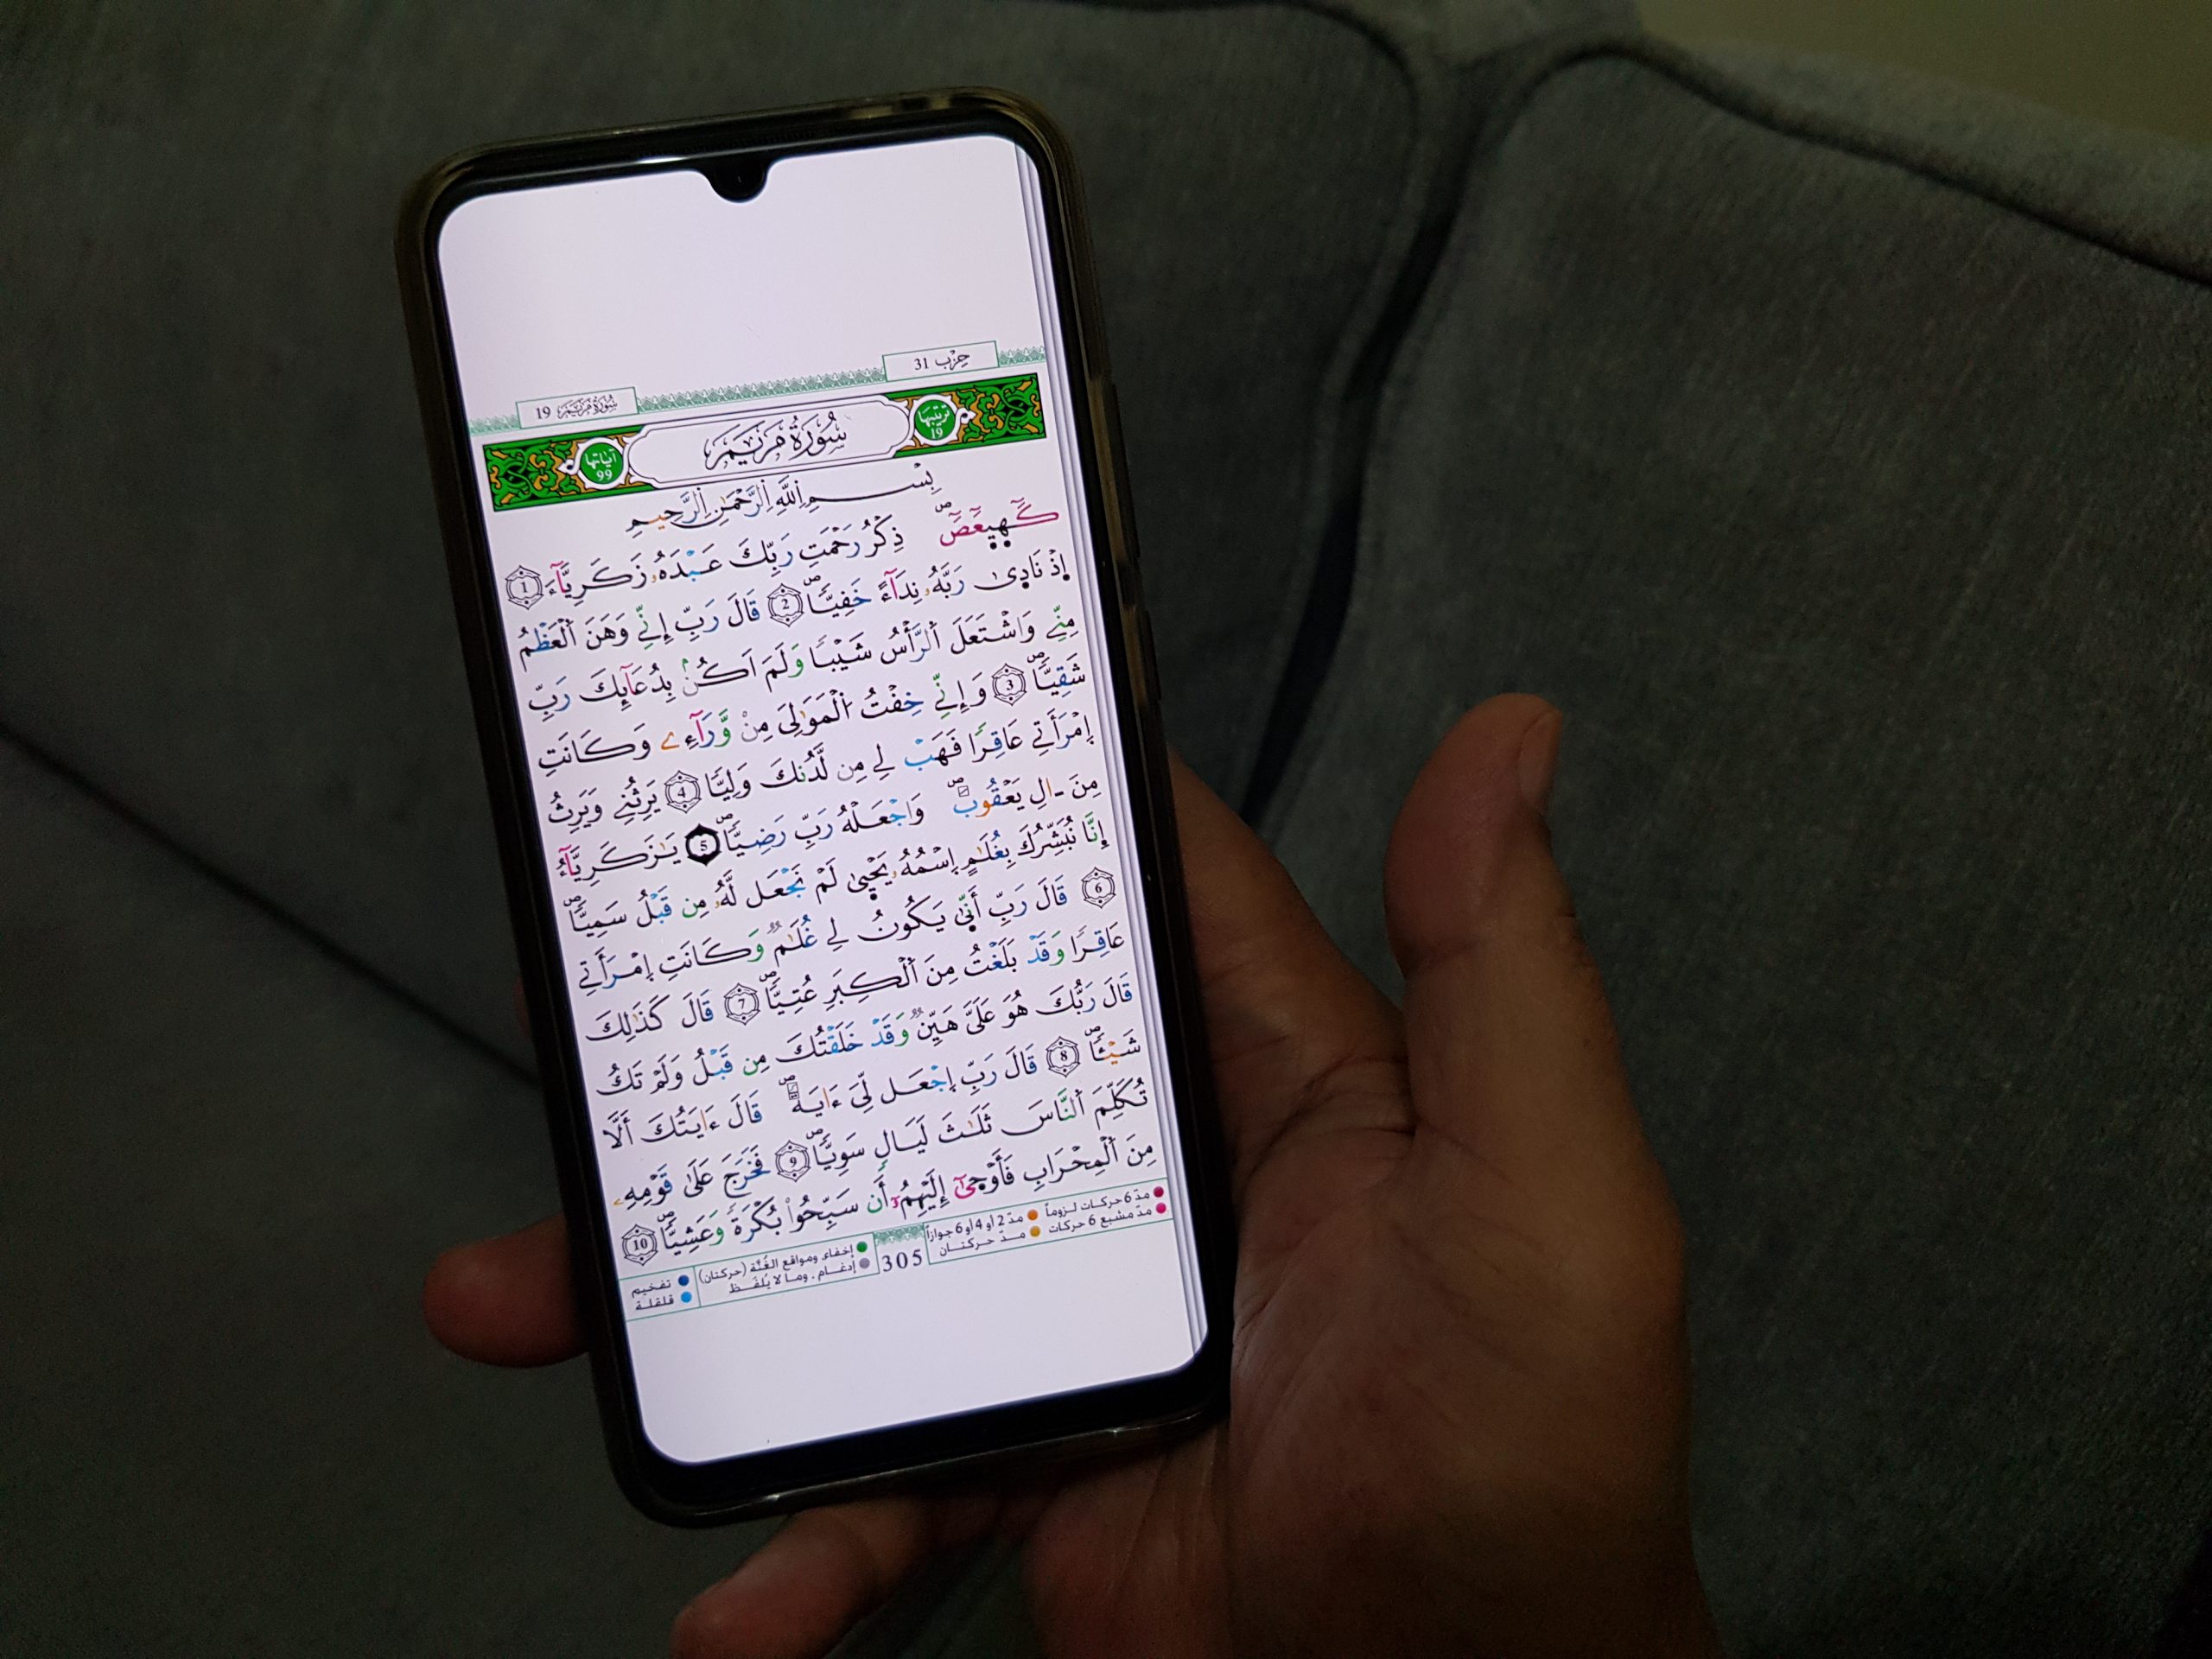 حِزْب 31
سُورَةُ مَرْيَمَ 19
تَرتيبُها 19
سُورَةُ مَرْيَمَ
آيَاتُها 99
بِسْمِ اِللَّهِ اِلرَّحْمَٰنِ اِلرَّحِيمِ
كَٓهيعَٓصَٓ ذِكْرُ رَحْمَتِ رَبِّكَ عَبْدَهُۥ زَكَرِيَّآءَ 1
إِذْ نَادِىٰ رَبَّهُۥ نِدَآءً خَفِيّٗا 2 قَالَ رَبِّ إِنِّے وَهَنَ اَ۬لْعَظْمُ
مِنِّے وَاشْتَعَلَ اَ۬لرَّأْسُ شَيْباٗ وَلَمَ اَكُنۢ بِدُعَآئِكَ رَبِّ
شَقِيّٗا 3 وَإِنِّے خِفْتُ اُ۬لْمَوَٰلِىَ مِنْ وَّرَآءِے وَكَانَتِ
اِمْرَأَتِے عَاقِراٗ فَهَبْ لِے مِن لَّدُنكَ وَلِيّٗا 4 يَرِثُنِے وَيَرِثُ
مِنَ ـ الِ يَعْقُوبَ وَاجْعَلْهُ رَبِّ رَضِيّٗا 5 يَٰزَكَرِيَّآءُ
اِ۪نَّا نُبَشِّرُكَ بِغُلَٰمٍ اِ۪سْمُهُۥ يَحْيِىٰ لَمْ نَجْعَل لَّهُۥ مِن قَبْلُ سَمِيّٗا
6 قَالَ رَبِّ أَنِّىٰ يَكُونُ لِے غُلَٰمٞ وَكَانَتِ اِ۪مْرَأَتِے
عَاقِراٗ وَقَدْ بَلَغْتُ مِنَ اَ۬لْكِبَرِ عُتِيّٗا 7 قَالَ كَذَٰلِكَ
قَالَ رَبُّكَ هُوَ عَلَىَّ هَيِّنٞ وَقَدْ خَلَقْتُكَ مِن قَبْلُ وَلَمْ تَكُ
شَيْـٔاٗ 8 قَالَ رَبِّ اِ۪جْعَل لِّىَ ءَايَةٗ قَالَ ءَايَتُكَ أَلَّا
تُكَلِّمَ اَ۬لنَّاسَ ثَلَٰثَ لَيَالٖ سَوِيّٗا 9 فَخَرَجَ عَلَىٰ قَوْمِهِۦ
مِنَ اَ۬لْمِحْرَابِ فَأَوْحِىٰٓ إِلَيْهِمُۥٓ أَن سَبِّحُواْ بُكْرَةٗ وَعَشِيّٗا 10
مدّ 6 حركات لزوماً مدّ 2 أو 4 أو 6 جوازاً
مدّ مشبع 6 حركات مدّ حركتان
305
إخفاء ومواقع الغُنَّة (حركتان) تفخيم
إدغام ، وما لا يُلفَظ قلقلة